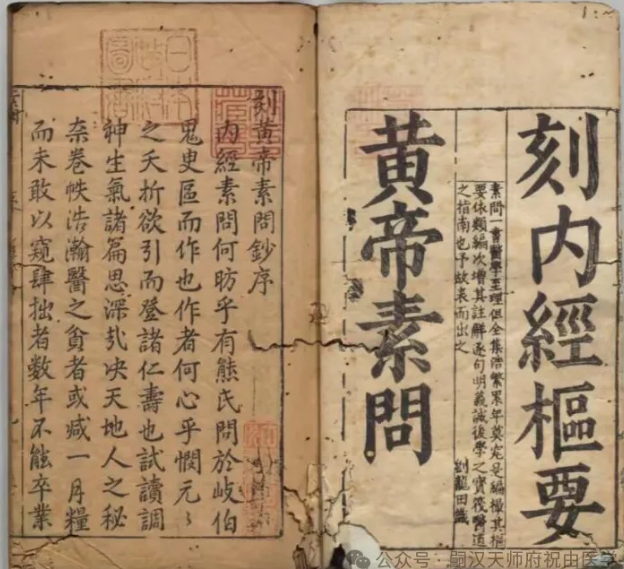 刻內經樞要
素問一書醫學至理但全集浩繁累年莫究是編撮其樞
要依類編次增其註解逐句明義誠後學之寶筏醫道
之指南也予故表而出之
劉龍田識
黃帝素問
刻黃帝素問鈔序
內經素問何昉乎有熊氏問於岐伯
鬼臾區而作也作者何心乎憫元〻
之夭折欲引而登諸仁壽也試讀調
神生氣諸篇思深㢤决天地人之秘
柰卷帙浩瀚醫之貧者或减一月糧
而未敢以窺肆拙者数年不能卒業
公众号：嗣汉天师府祝由医学